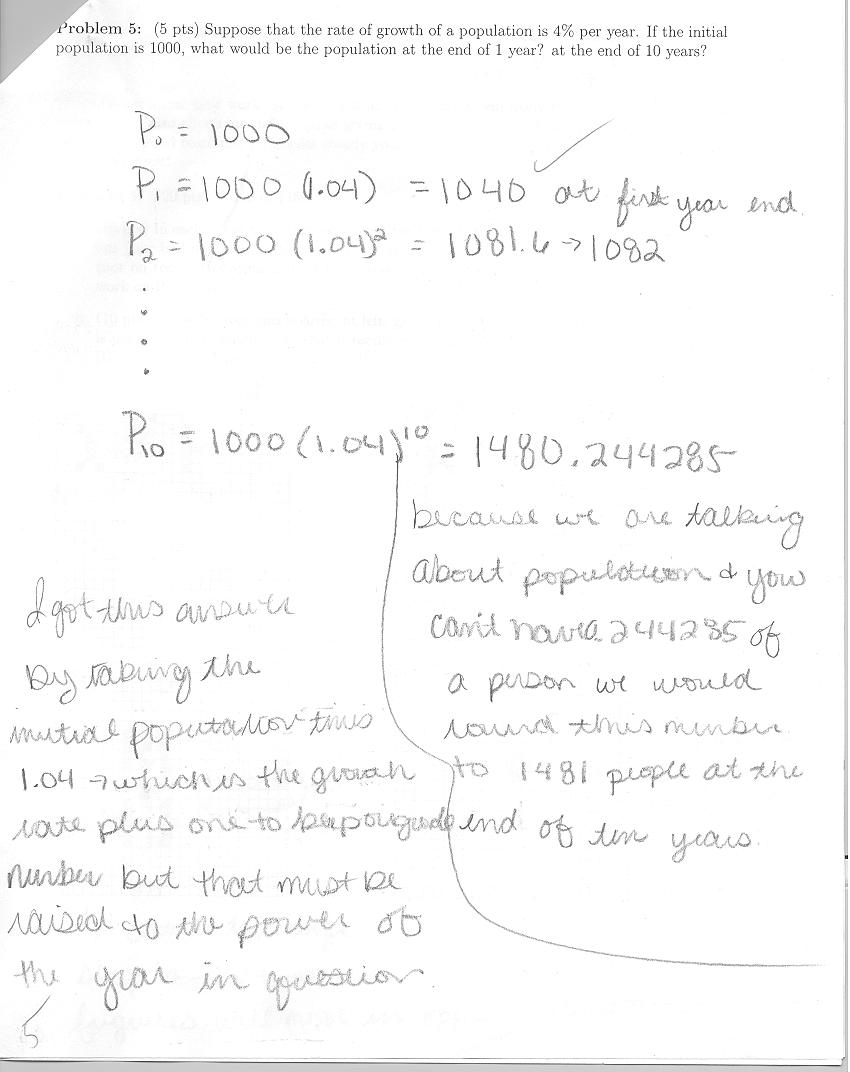 Problem 5: (5 pts) Suppose that the rate of growth of a population is 4% per year. If the initial
population is 1000, what would be the population at the end of 1 year? at the end of 10 years?
P₀ = 1000
P₁ = 1000 (1.04) = 1040 at first year end.
P₂ = 1000 (1.04)² = 1081.6 → 1082
P₁₀ = 1000 (1.04)¹⁰ = 1480.244285
because we are talking
about population & you
can't have .244285 of
a person we would
round this number
to 1481 people at the
end of ten years.
I got this answer
by taking the
initial population times
1.04 → which is the growth
rate plus one to keep
number but that must be
raised to the power of
the year in question.
5